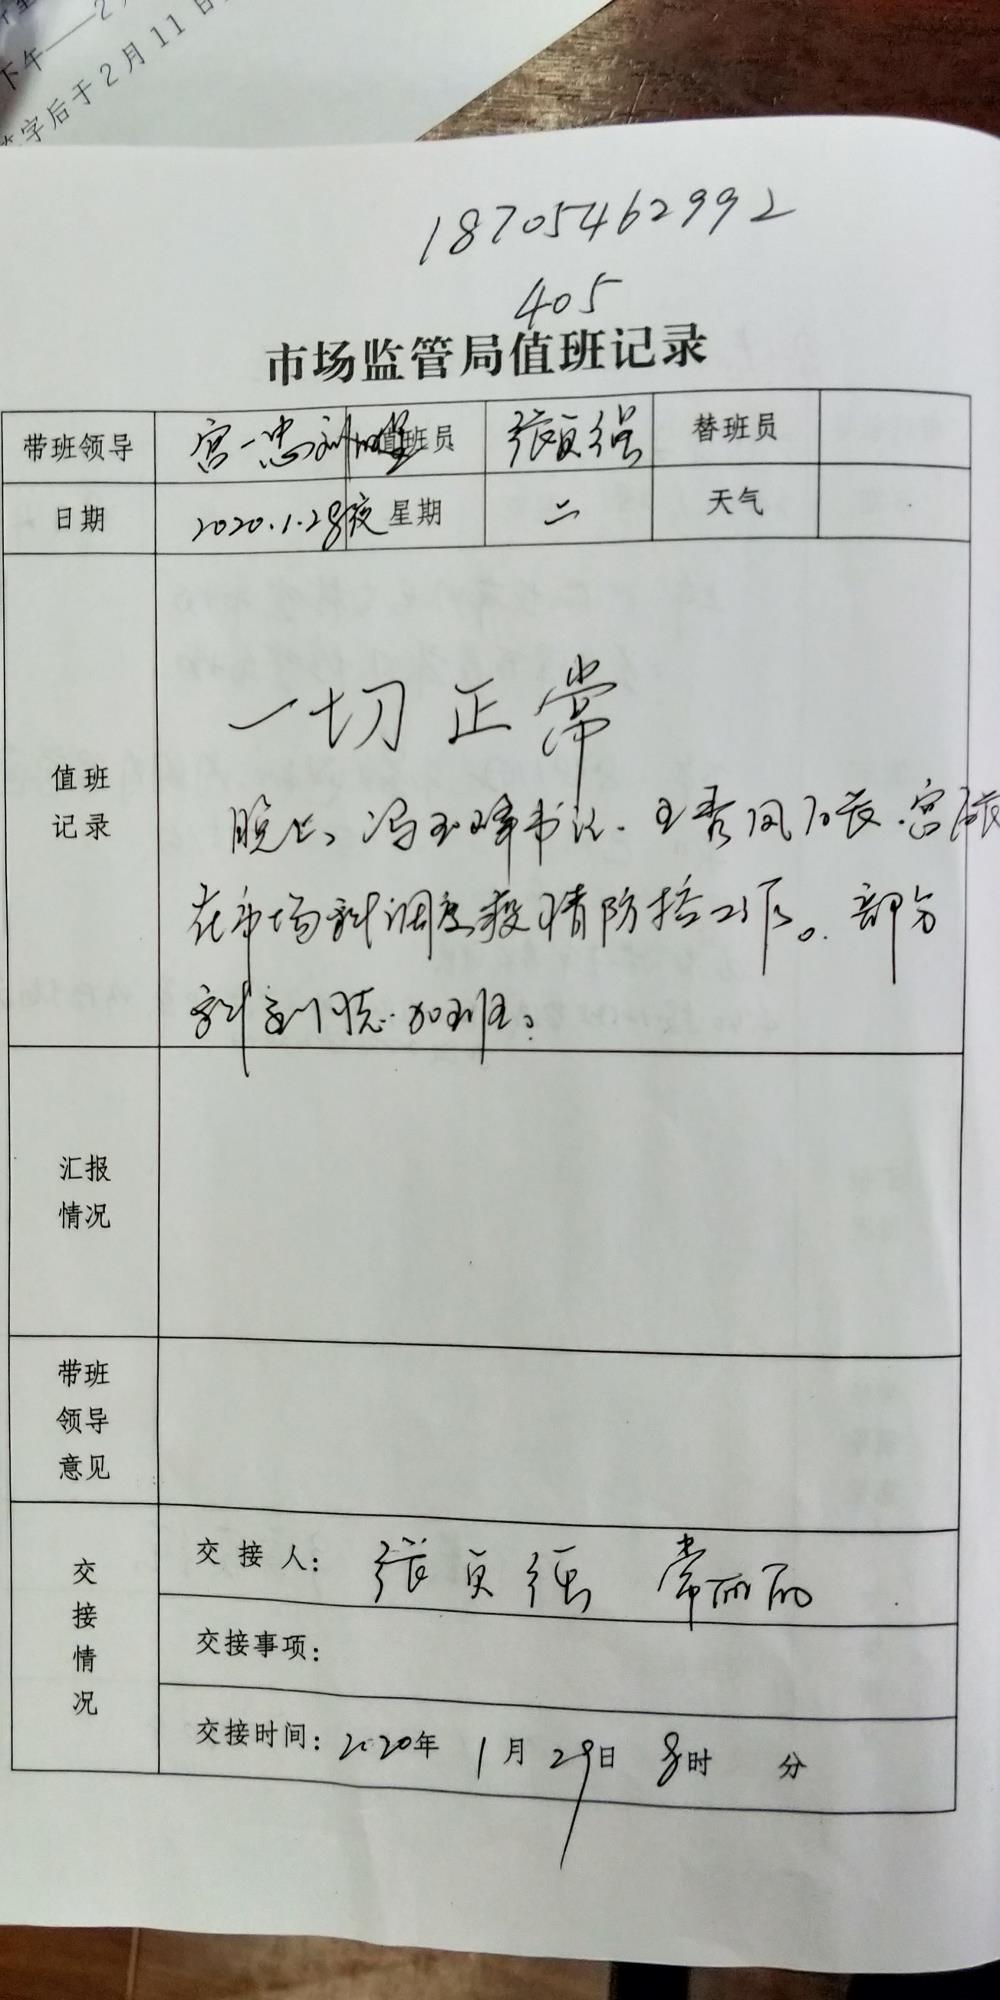 下午——2月
字后于2月11日
18705462992
405
市场监管局值班记录
带班领导 宫一忠 值班员 张贞强 替班员
日期 2020.1.28夜 星期 二 天气
值班记录
一切正常
晚上、冯玉峰书记、王秀凤局长、宫局长
在市场科调度疫情防控工作。部分
科室同志加班。
汇报情况
带班领导意见
交接情况
交接人: 张贞强 常丽丽
交接事项:
交接时间: 2020年 1月 29日 8时 分